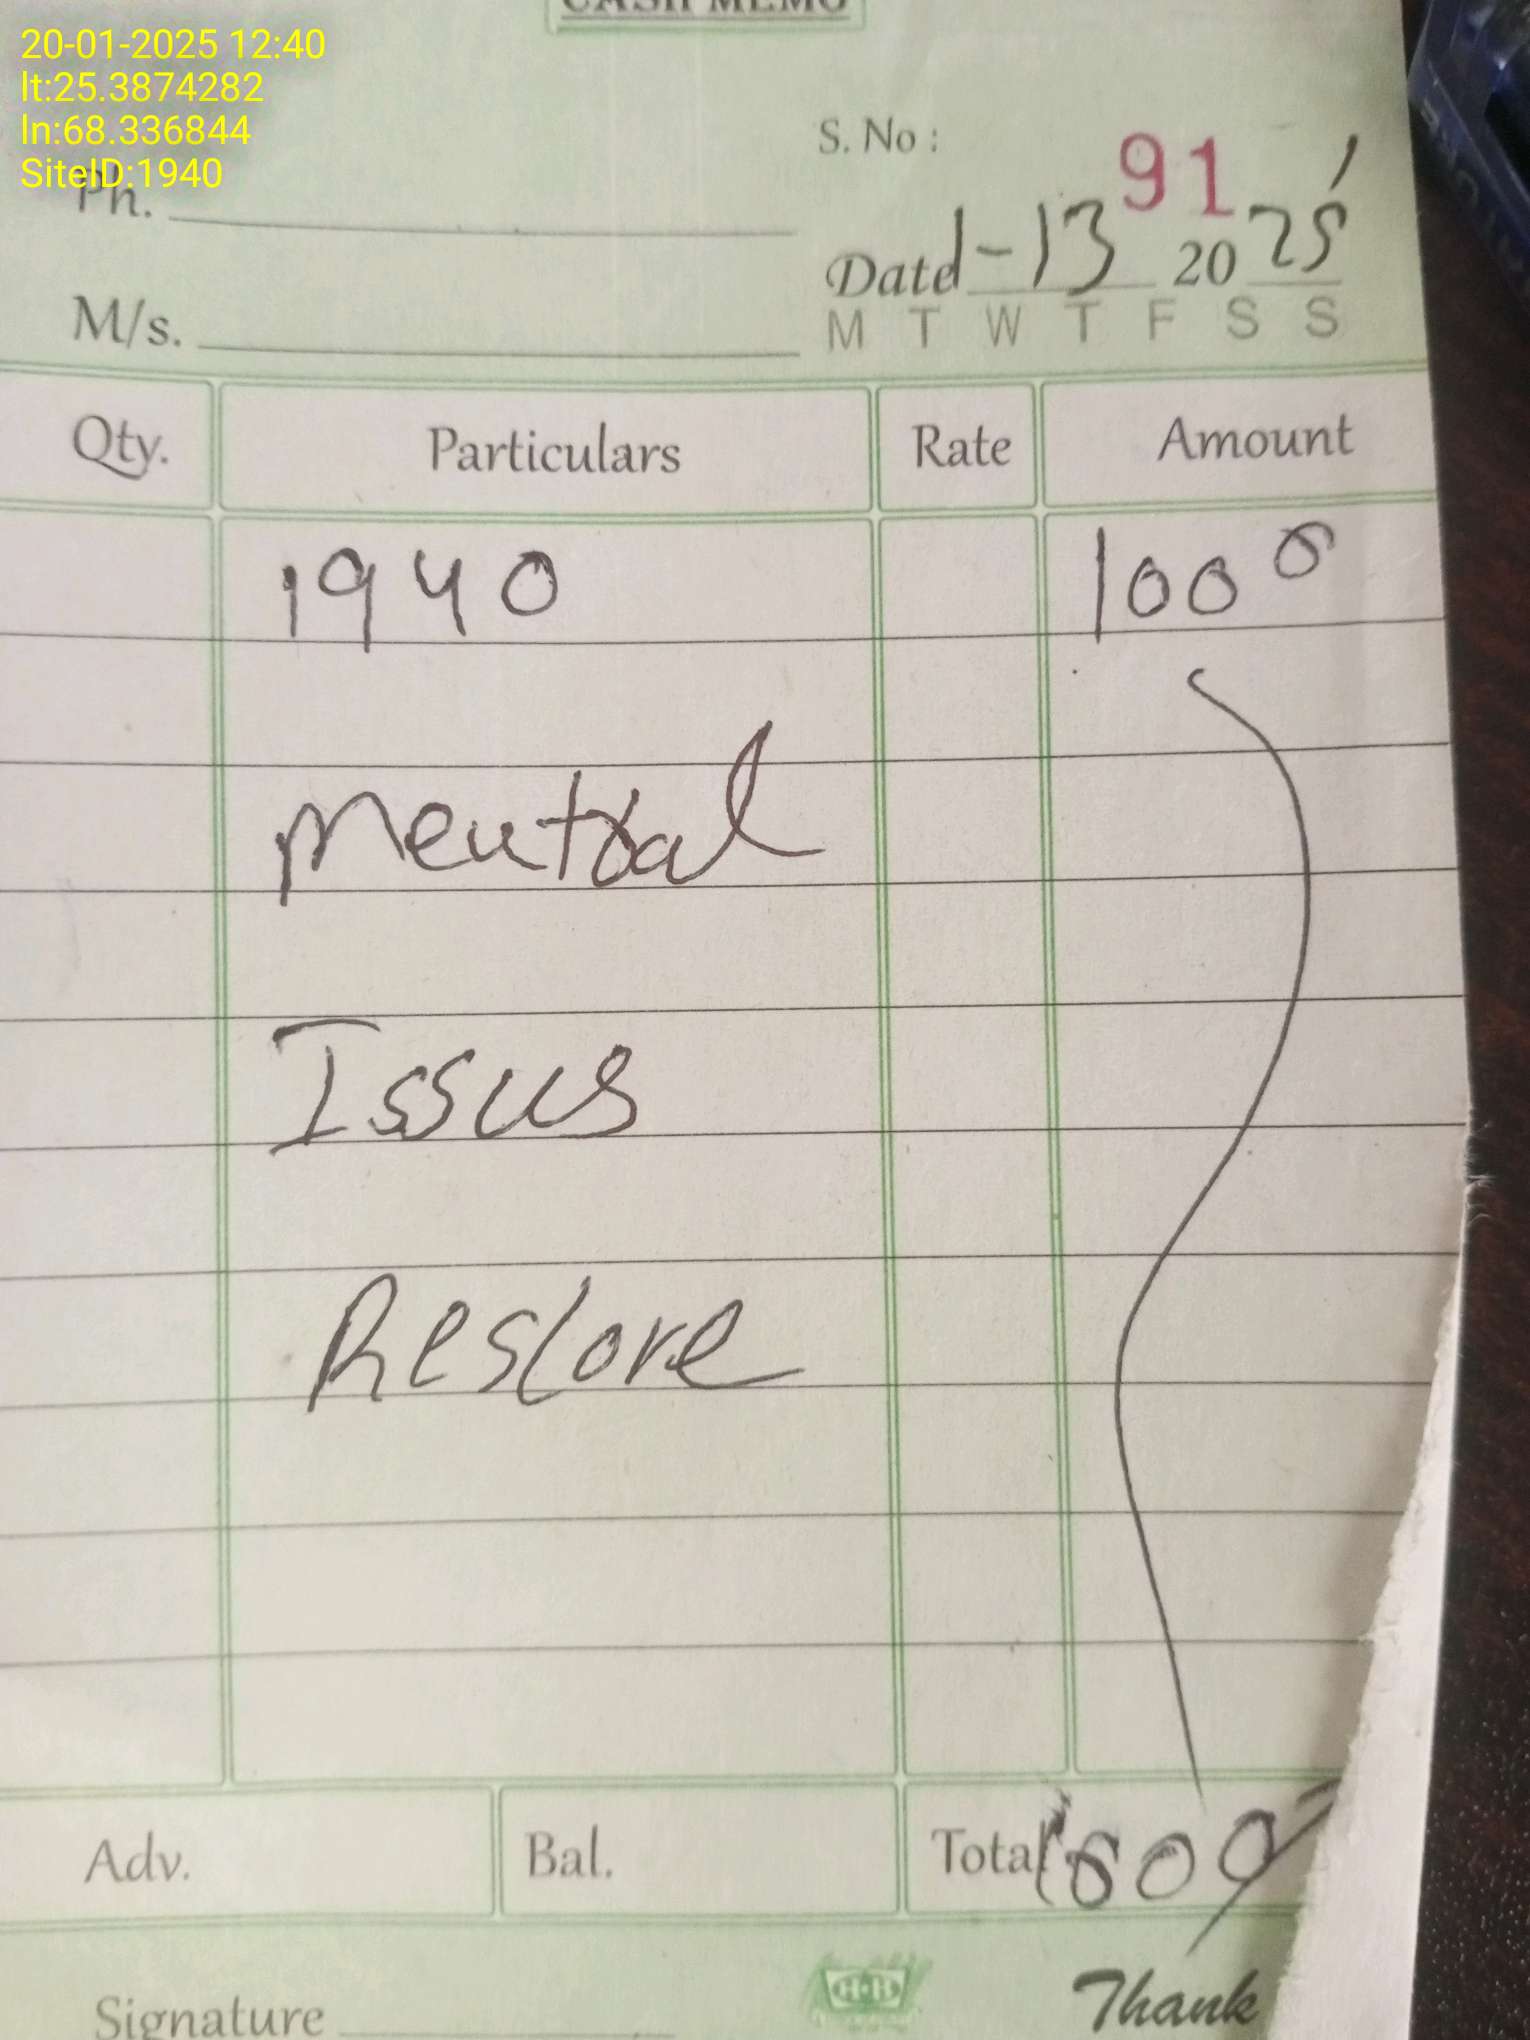 CASH MEMO
20-01-2025 12:40
lt:25.3874282
ln:68.336844
SiteID:1940
S. No : 91
Ph.
Date 1-13 2025
M/s.
M T W T F S S
Qty. Particulars Rate Amount
1940 1000
Meutral
Issus
Restore
Adv. Bal. Total 1000
H·H
Signature Thank